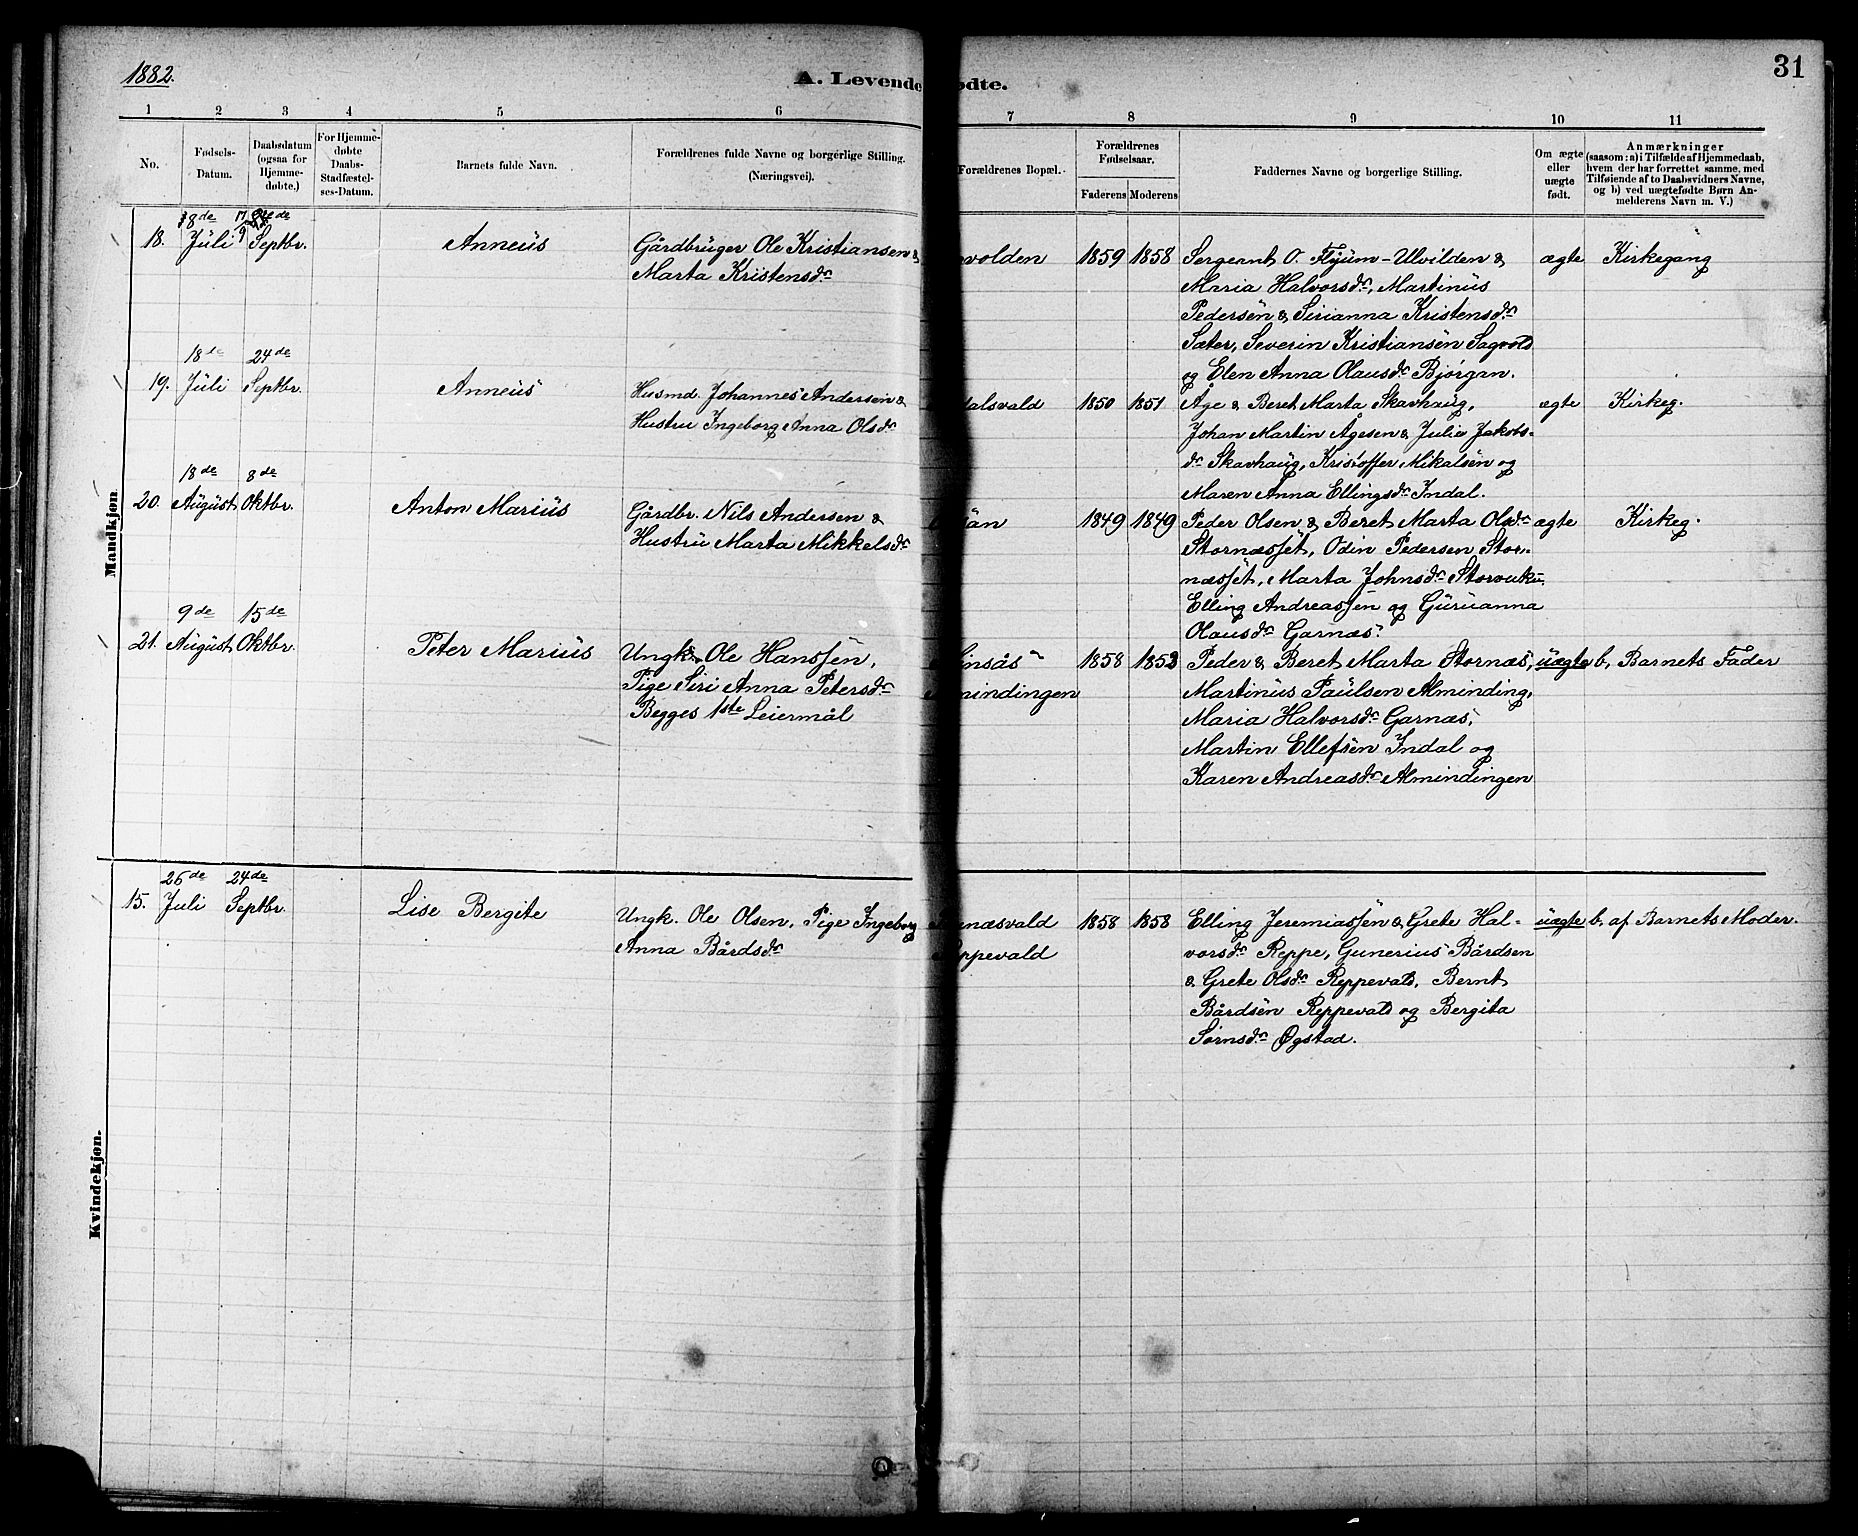 1882.
A. Levende
ødte.
31
1 2 3 4 5 6 7 8 9 10 11
No.
Fødsels-
Datum.
Daabsdatum
(ogsaa for
Hjemme-
døbte.)
For Hjemme-
døbte
Daabs-
Stadfæstel-
ses-Datum.
Barnets fulde Navn.
Forældrenes fulde Navne og borgerlige Stilling.
(Næringsvei).
Forældrenes Bopæl.
Forældrenes
Fødselsaar.
Faderens Moderens
Faddernes Navne og borgerlige Stilling.
Om ægte
eller
uægte
født.
Anmærkninger
(saasom: a) i Tilfælde af Hjemmedaab,
hvem der har forrettet samme, med
Tilføiende af to Daabsvidners Navne,
og b) ved uægtefødte Børn An-
melderens Navn m. V.)
Mandkjøn
18.
8de
Juli
Septbr.
Anneus
Gårdbruger Ole Kristiansen &
Marta Kristensdr
volden
1859 1858
Sergernt O. Flyum-Ulvilden &
Maria Halvorsdr, Martinus
Pedersen & Sirianna Kristensdr
Sæter, Severin Kristiansen Sagvold
og Elen Anna Olausdr Bjørgan.
ægte
Kirkegang
19.
18de
Juli
24de
Septbr.
Anneus
Husmd. Johannes Andersen &
Hustru Ingeborg Anna Olsdr
dalsvald
1850 1851
Åge & Beret Marta Skavhaug,
Johan Martin Agesen & Julia Jakobs-
dr Skavhaug, Kristoffer Mikalsen og
Maren Anna Ellingsdr Indal.
ægte
Kirkeg.
20.
18de
August
8de
Oktbr.
Anton Marius
Gårdbr. Nils Andersen &
Hustru Marta Mikkelsdr
1849 1849
Peder Olsen & Beret Marta Olsdr
Stornæsset, Odin Pedersen Stor-
næsset, Marta Johnsdr Storvuku
Elling Andreassen og Guruanna
Olausdr Garnæs.
ægte
Kirkeg.
21.
9de
August
15de
Oktbr.
Peter Marius
Ungk. Ole Hanssen,
Pige Siri Anna Petersdr
Begges 1ste Leiermål
insås
mindingen
1858 1853
Peder & Beret Marta Stornæs,
Martinus Paulsen Alminding,
Maria Halvorsdr Garnæs,
Martin Ellefsen Indal og
Karen Andreasdr Almindingen
uægte
b, Barnets Fader
Kvindekjøn.
15.
26de
Juli
24de
Septbr.
Lise Bergite
Ungk. Ole Olsen, Pige Ingeborg
Anna Bårdsdr
næsvald
ppevald
1858 1858
Elling Jeremiassen & Grete Hal-
vorsdr Reppe, Gunerius Bårdsen
& Grete Olsdr Reppevald, Bernt
Bårdsen Reppevald og Bergita
Sørnsdr Øgstad.
uægte
b, af Barnets Moder.